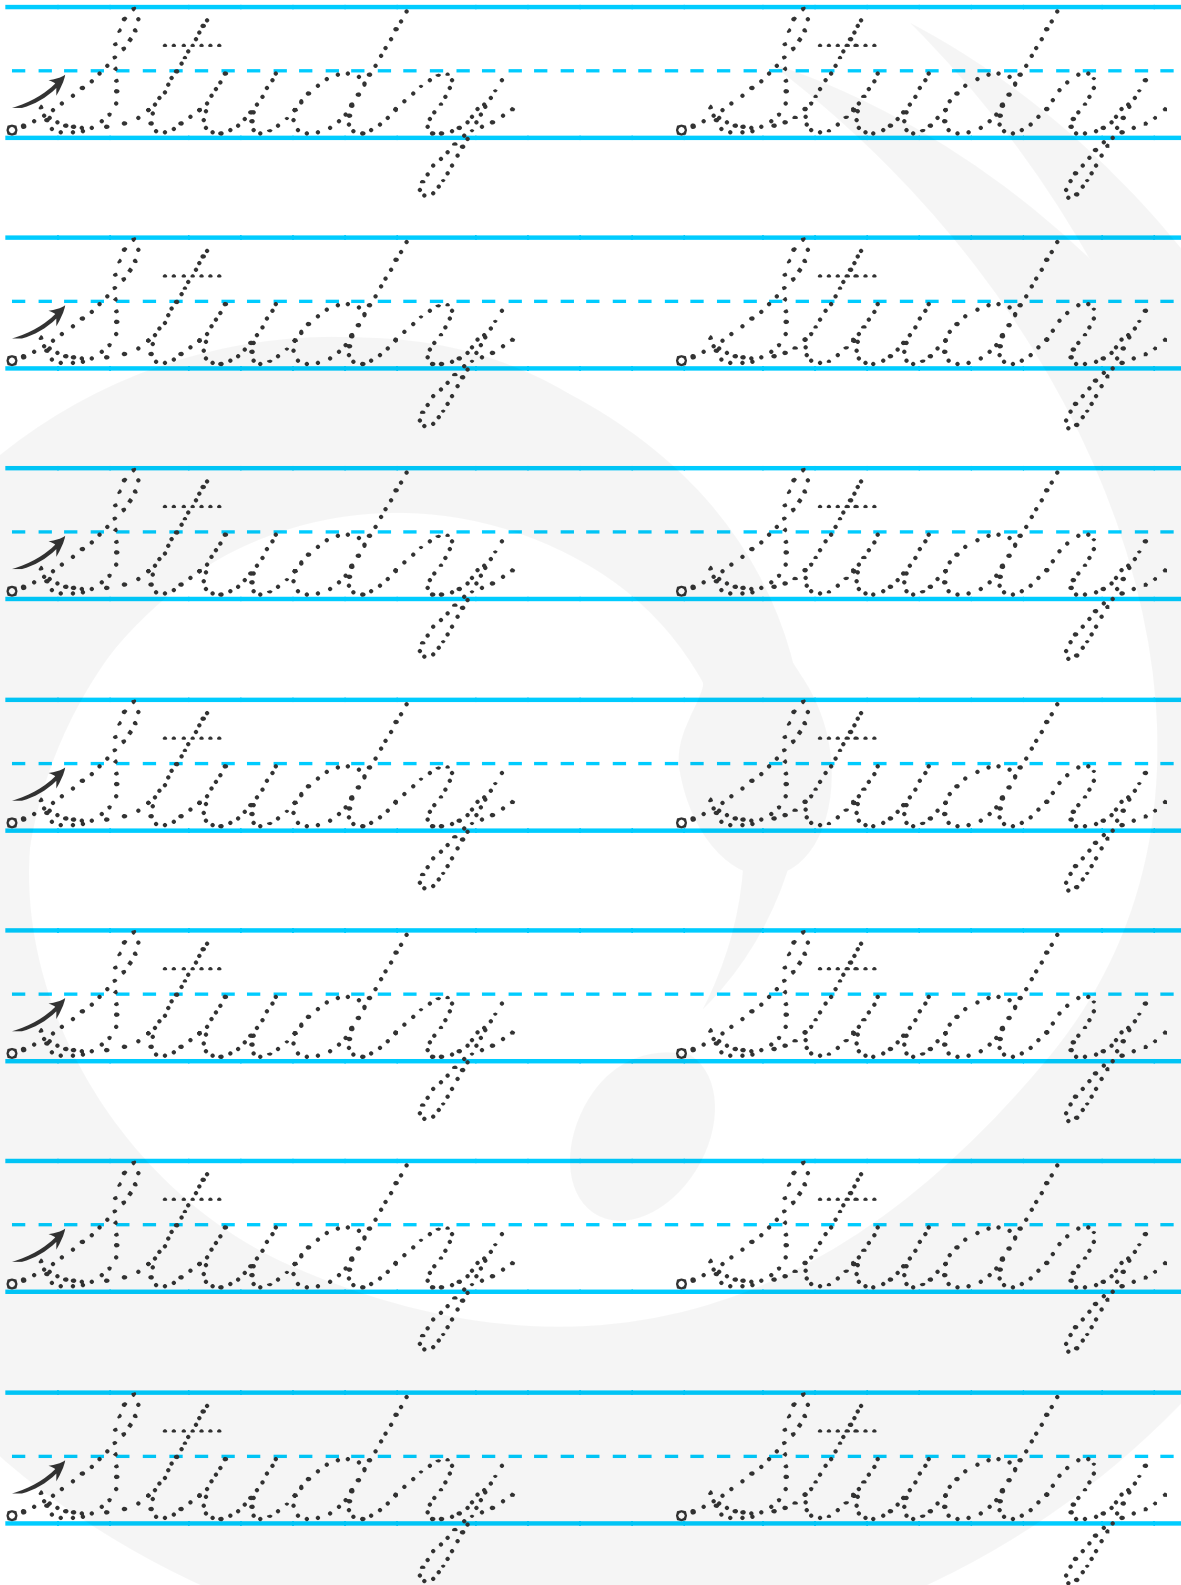 Study Study
Study Study
Study Study
Study Study
Study Study
Study Study
Study Study